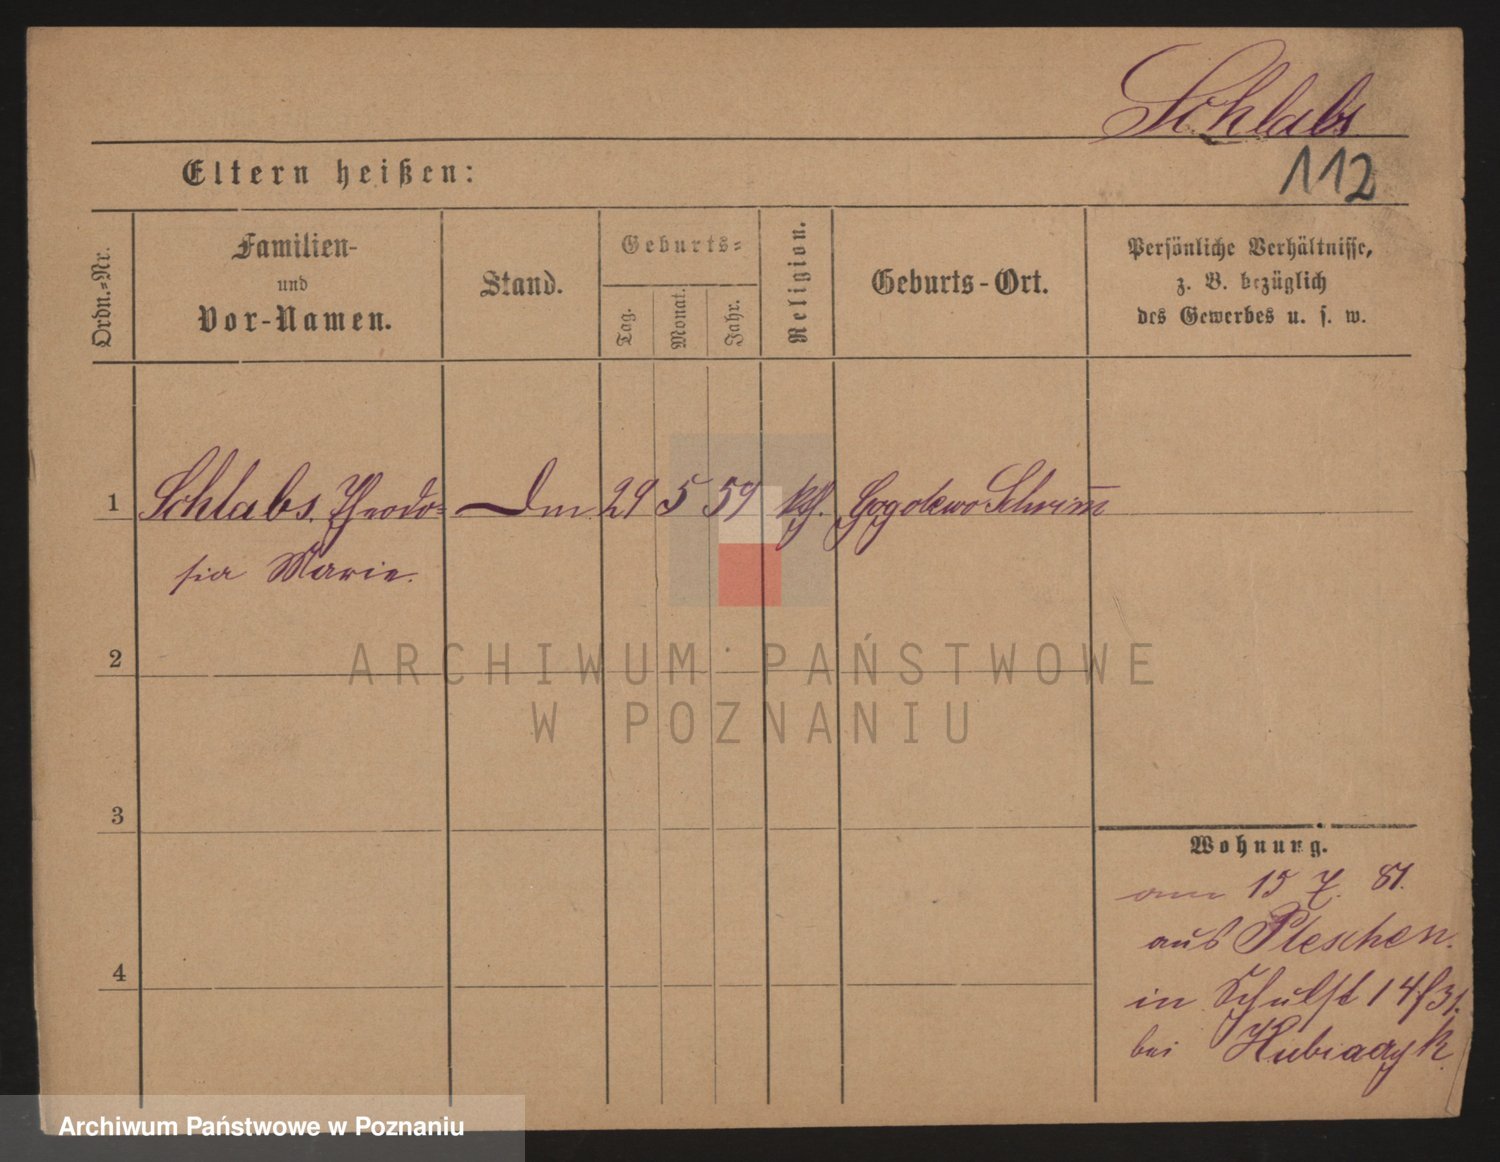 Schlabs
112
Eltern heißen:
Ordn.-Nr.
Familien-
und
Vor-Namen.
Stand.
Geburts-
Tag.
Monat.
Jahr.
Religion.
Geburts-Ort.
Persönliche Verhältnisse,
z. B. bezüglich
des Gewerbes u. s. w.
1 Schlabs. Theodo- 29 5 59 kth. Schrim̅
sia Marie.
2
3
4
Wohnung.
am 15 7. 81.
aus Pleschen.
in Schulst 14/31.
bei
ARCHIWUM PAŃSTWOWE
W POZNANIU
Archiwum Państwowe w Poznaniu